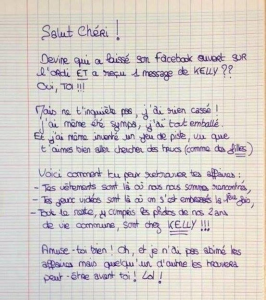 Salut Chéri !
Devine qui a laissé son Facebook ouvert SUR
l'ordi ET a reçu 1 message de KELLY ??
Oui, TOI !!!
Mais ne t'inquiète pas, j'ai rien cassé !
J'ai même été sympa, j'ai tout emballé
Et j'ai même inventé un jeu de piste, vu que
t'aimes bien aller chercher des trucs (comme des filles)
Voici comment tu peux retrouver tes affaires :
- Tes vêtements sont là où nous nous sommes rencontrés,
- Tes jeux vidéos sont là où on s'est embrassés la 1ère fois,
- Tout le reste, y compris les photos de nos 2 ans
de vie commune, sont chez KELLY !!!
Amuse-toi bien ! Oh, et je n'ai pas abîmé les
affaires mais quelqu'un d'autre les trouvera
peut-être avant toi ! Lol !